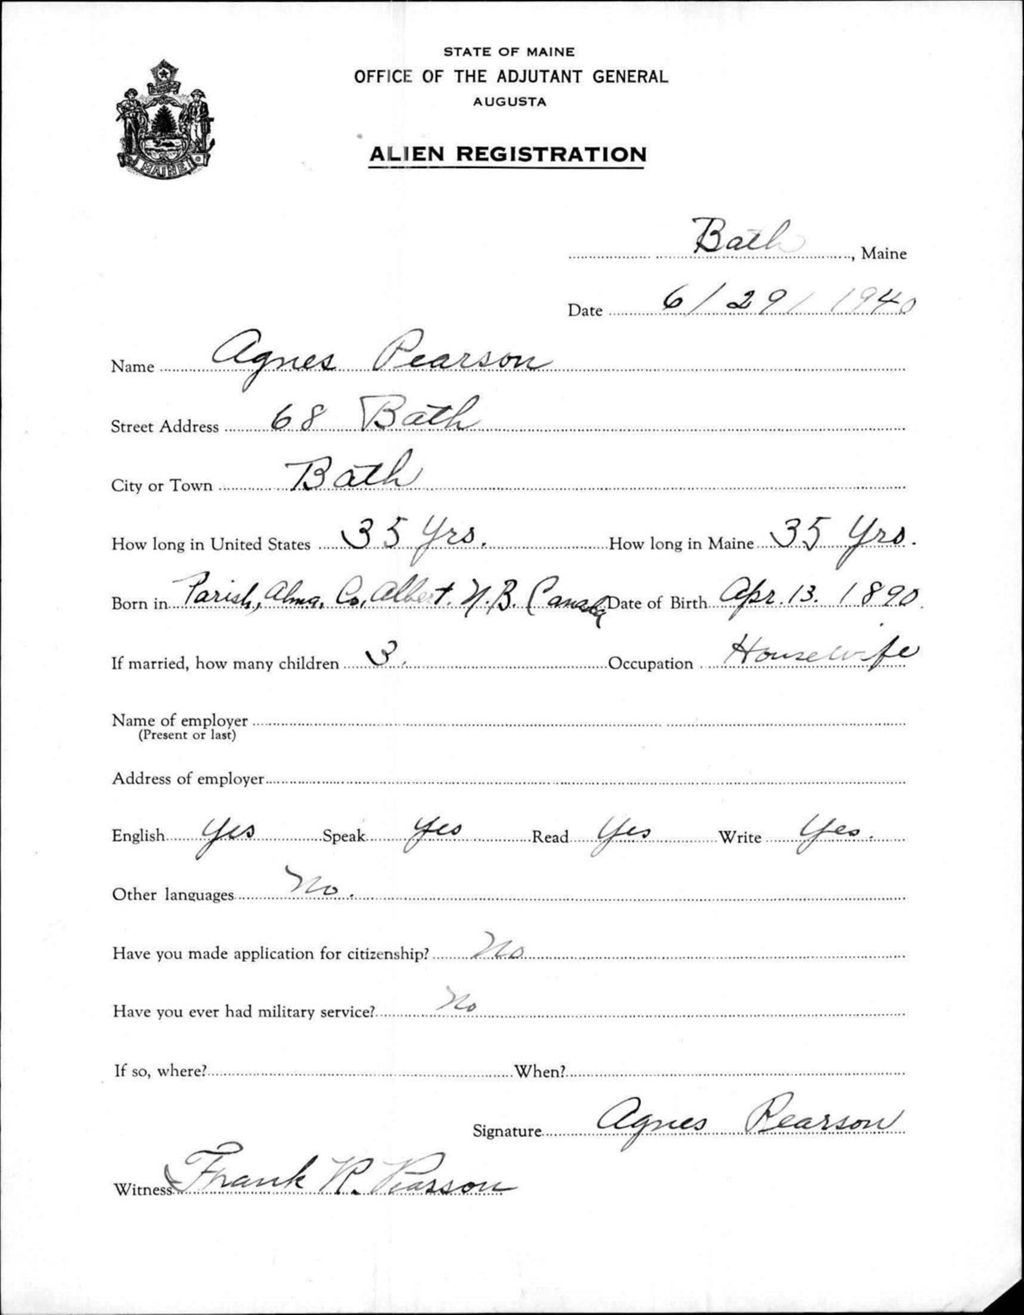 STATE OF MAINE
OFFICE OF THE ADJUTANT GENERAL
AUGUSTA
ALIEN REGISTRATION
MAINE
Bath, Maine
Date 6/29/1940
Name Agnes Pearson
Street Address 68 Bath
City or Town Bath
How long in United States 35 Yrs. How long in Maine 35 Yrs.
Born in Parish, Alma, Co. Albert. N.B. Canada Date of Birth Apr. 13. 1890
If married, how many children 3. Occupation Housewife
Name of employer
(Present or last)
Address of employer
English Yes Speak Yes Read Yes Write Yes.
Other languages No.
Have you made application for citizenship? No
Have you ever had military service? No
If so, where? When?
Signature Agnes Pearson
Witness Frank R. Pearson